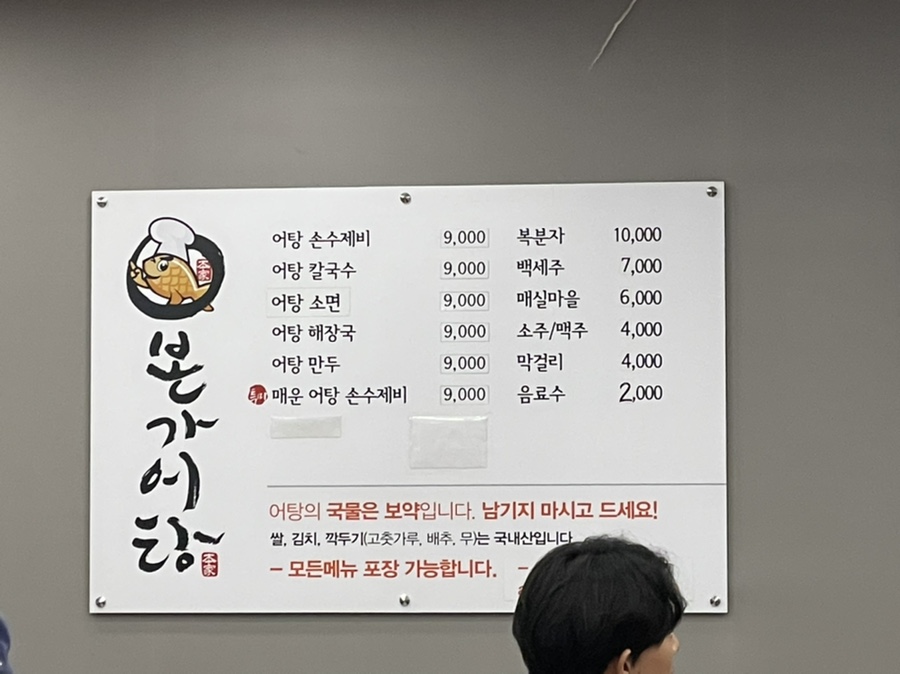 本家
본가어탕
本家
어탕 손수제비 9,000
어탕 칼국수 9,000
어탕 소면 9,000
어탕 해장국 9,000
어탕 만두 9,000
매운 어탕 손수제비 9,000
복분자 10,000
백세주 7,000
매실마을 6,000
소주/맥주 4,000
막걸리 4,000
음료수 2,000
어탕의 국물은 보약입니다. 남기지 마시고 드세요!
쌀, 김치, 깍두기(고춧가루, 배추, 무)는 국내산입니다
- 모든메뉴 포장 가능합니다. -